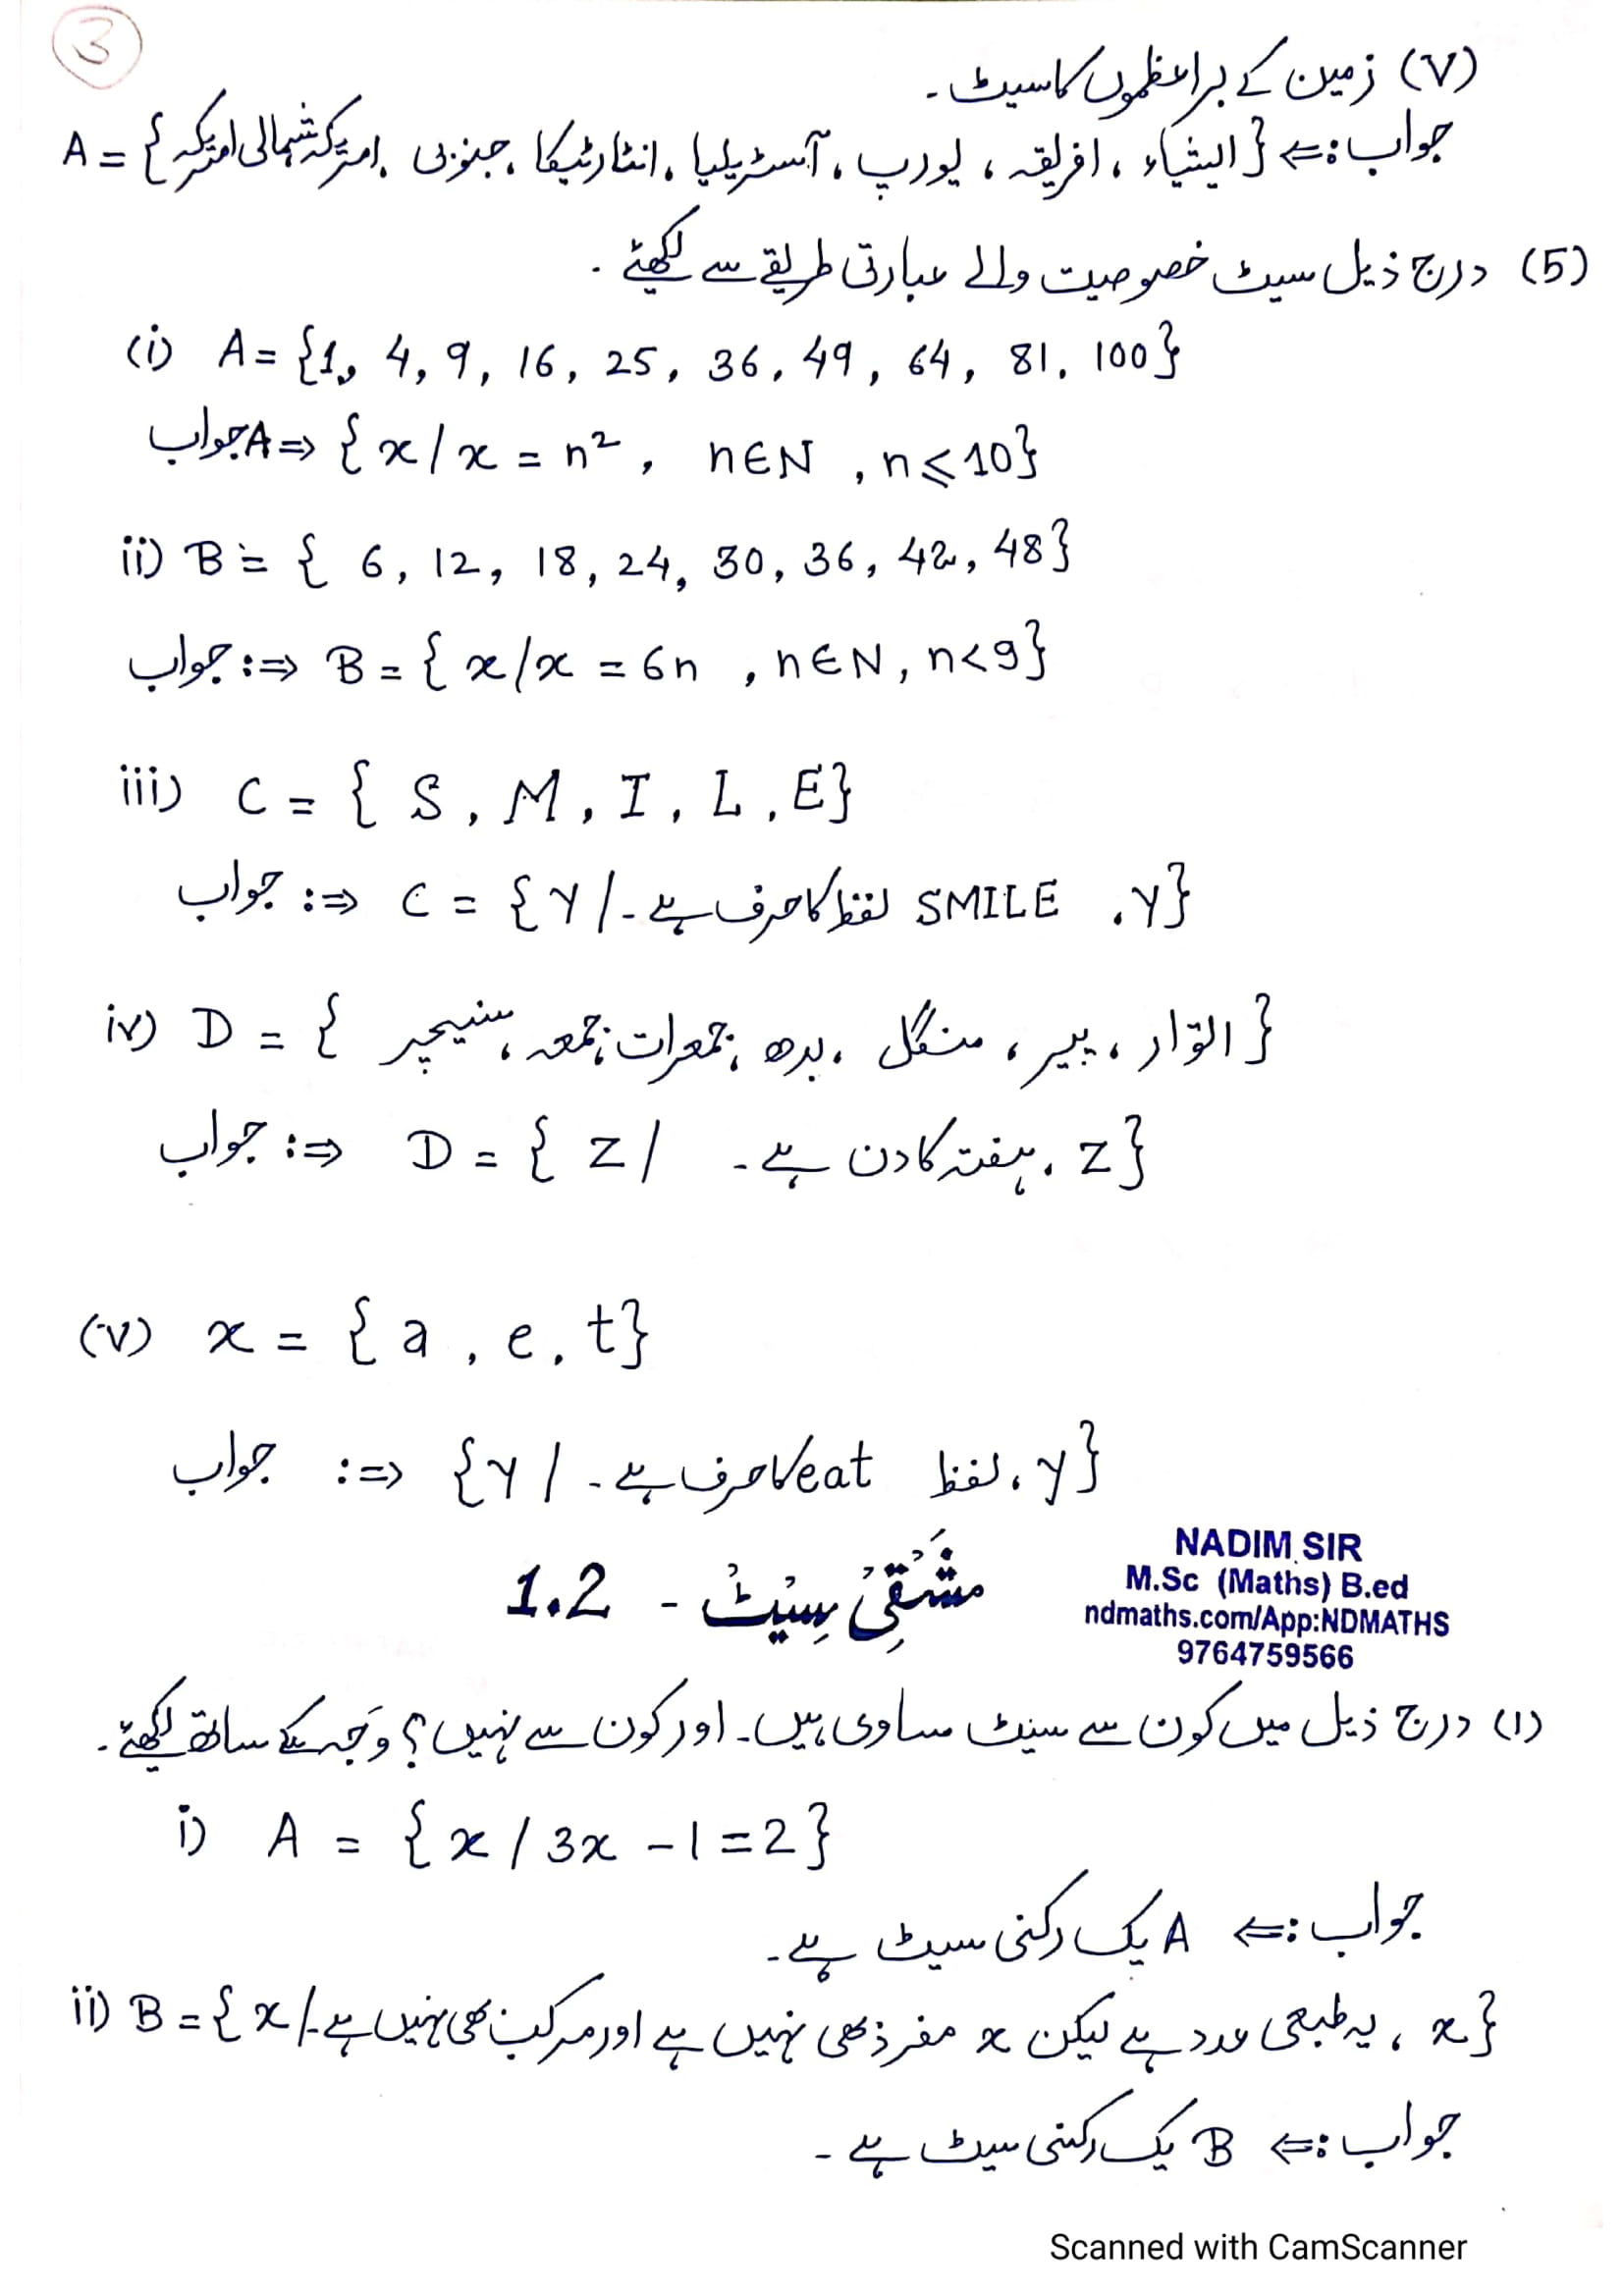 3
(V) زمین کے براعظموں کا سیٹ۔
جواب :⇐ A = { ایشیاء ، افریقہ ، یورپ ، آسٹریلیا ، انٹارٹیکا ، جنوبی امریکہ ، شمالی امریکہ }
(5) درج ذیل سیٹ خصوصیت والے عبارتی طریقے سے لکھئے ۔
(i) A = {1, 4, 9, 16, 25, 36, 49, 64, 81, 100}
جواب A ⇒ { x / x = n², n∈N, n⩽10}
ii) B = { 6, 12, 18, 24, 30, 36, 42, 48}
جواب :⇒ B = { x/x = 6n , n∈N, n<9}
iii) C = { S, M, I, L, E}
جواب :⇒ C = {Y / Y، SMILE لفظ کا حرف ہے۔}
iv) D = { اتوار ، پیر ، منگل ، بدھ ، جمعرات ، جمعہ ، سنیچر }
جواب :⇒ D = { Z / Z ، ہفتہ کا دن ہے۔ }
(v) x = { a, e, t}
جواب :⇒ {Y / y ، لفظ eat کا حرف ہے۔ }
مَشْقِیْ سِیْٹْ - 1.2
NADIM SIR
M.Sc (Maths) B.ed
ndmaths.com/App:NDMATHS
9764759566
(1) درج ذیل میں کون سے سیٹ مساوی ہیں۔ اور کون سے نہیں ؟ وجہ کے ساتھ لکھئے۔
i) A = { x / 3x - 1 = 2}
جواب :⇐ A یک رکنی سیٹ ہے۔
ii) B = { x / x ، یہ طبعی عدد ہے لیکن x مفرد بھی نہیں ہے اور مرکب بھی نہیں ہے۔ }
جواب :⇐ B یک رکنی سیٹ ہے ۔
Scanned with CamScanner